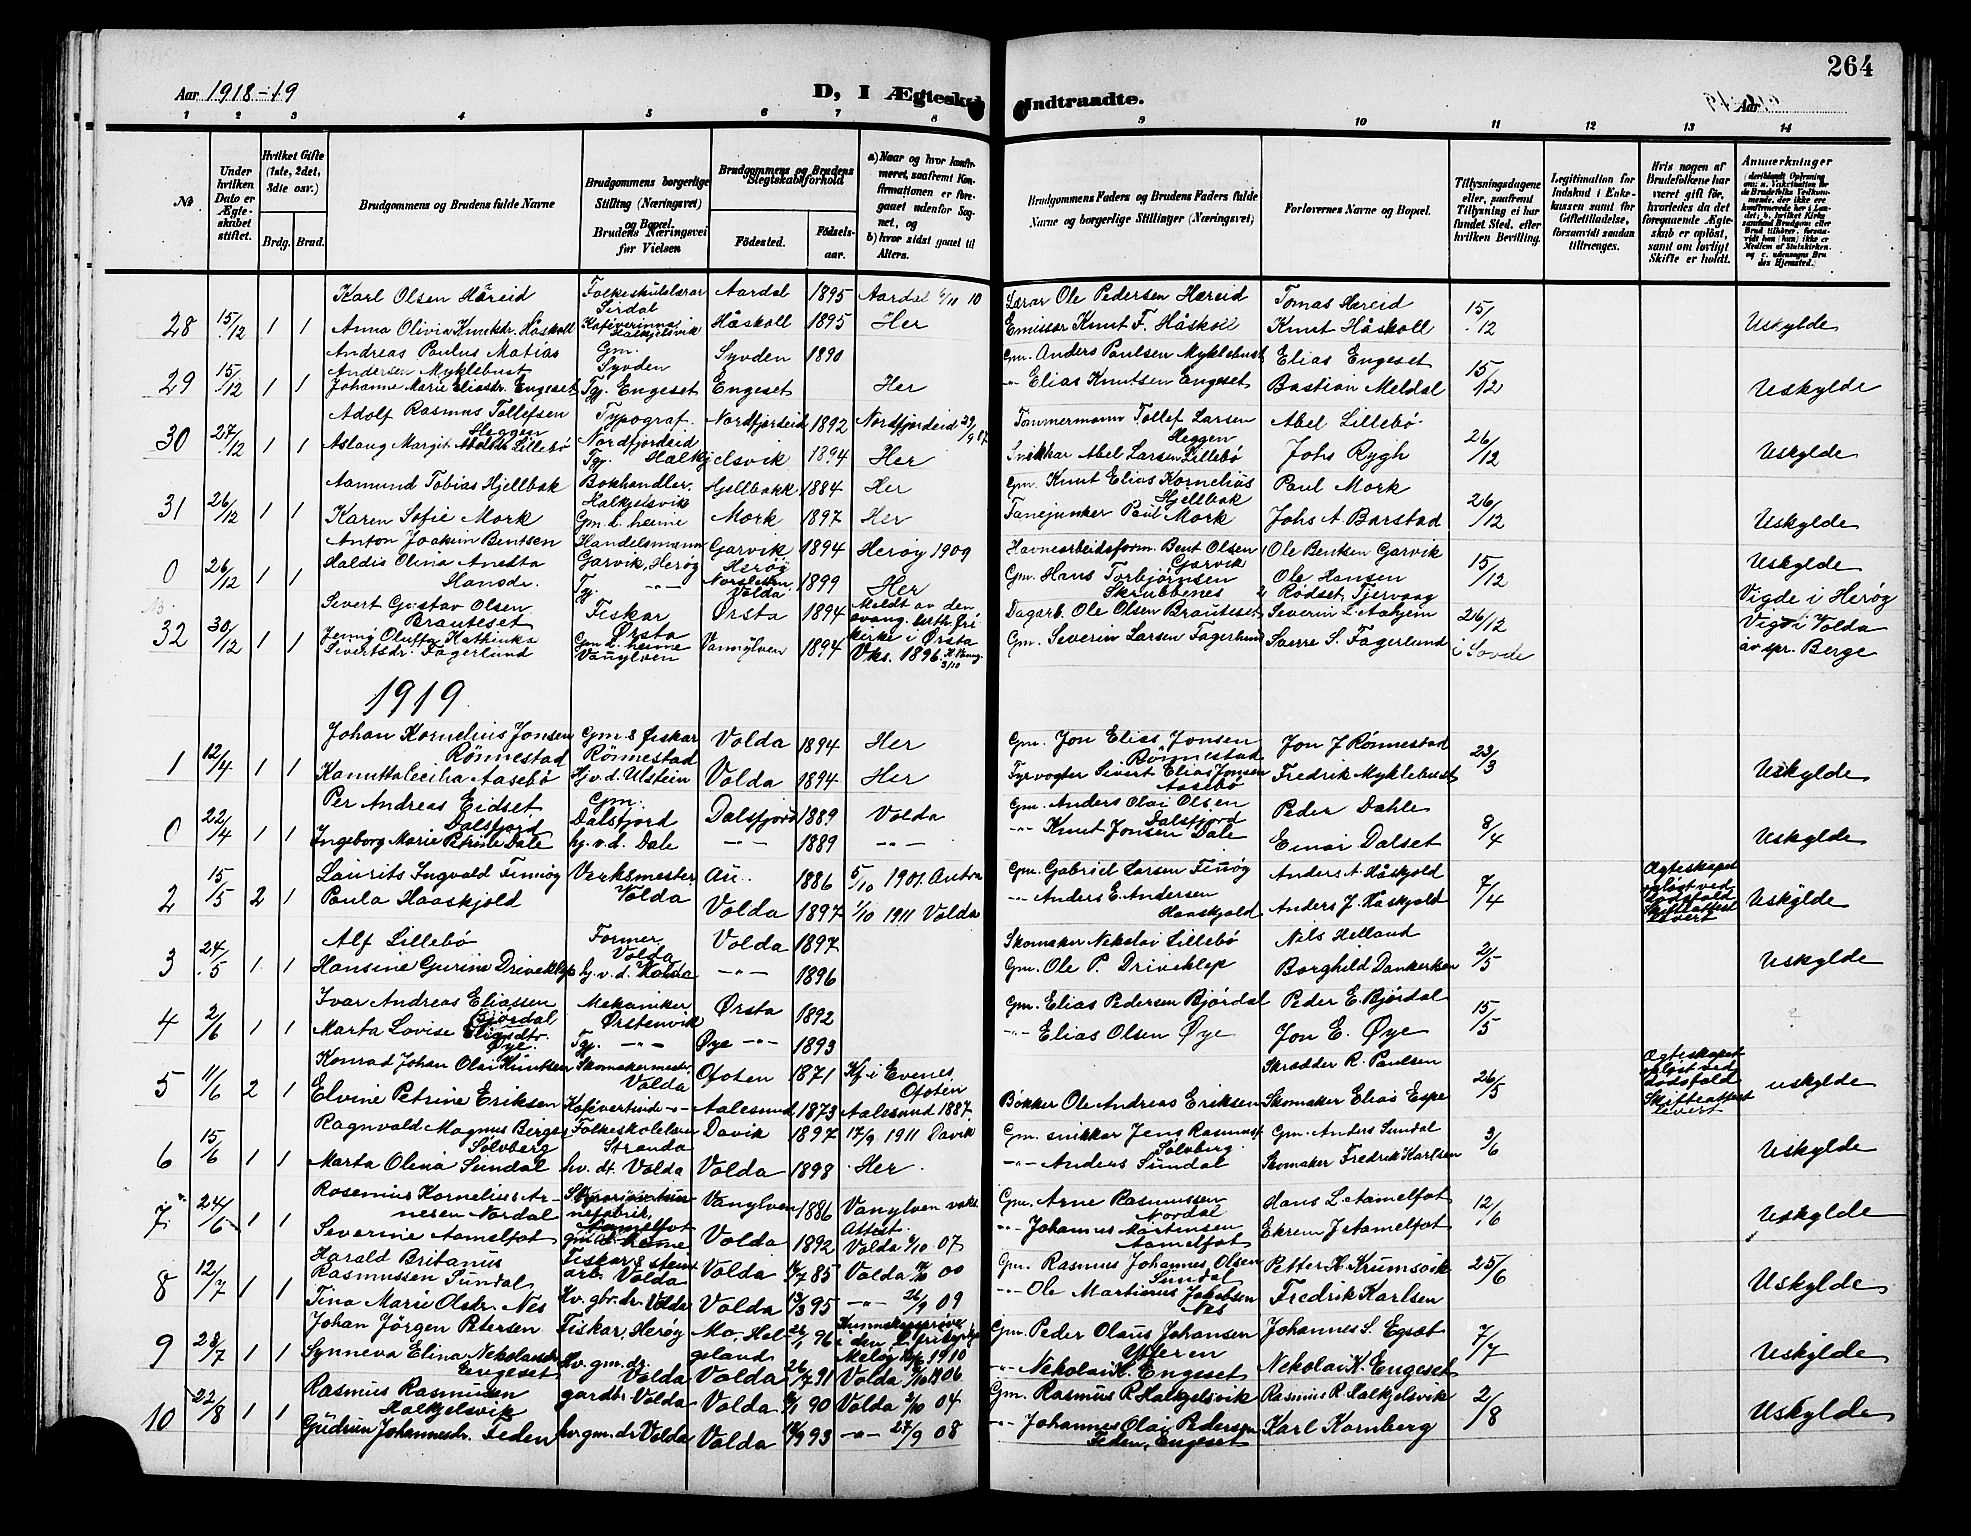 264
Aar 1918-19
D, I Ægteskab Indtraadte.
Aar
1 2 3 4 5 6 7 8 9 10 11 12 13 14
No
Under hvilken Dato er Ægteskabet stiftet.
Hvilket Gifte (1ste, 2det, 3die osv.)
Brdg. Brud.
Brudgommens og Brudens fulde Navne
Brudgommens borgerlige Stilling (Næringsvei) og Bopæl. Brudens Næringsvei før Vielsen
Brudgommens og Brudens Slegtskabsforhold
Fødested. Fødselsaar.
a) Naar og hvor konfirmeret, saafremt Konfirmationen er foregaaet udenfor Sognet, og
b) hvor sidst gaaet til Alters.
Brudgommens Faders og Brudens Faders fulde Navne og borgerlige Stillinger (Næringsvei)
Forlovernes Navne og Bopæl.
Tillysningsdagene eller, saafremt Tillysning ei har fundet Sted, efter hvilken Bevilling.
Legitimation for Indskud i Enkekassen samt for Giftetilladelse, forsaavidt saadan tiltrænges.
Hvis nogen af Brudefolkene har været gift før, hvorledes da det foregaaende Ægteskab er opløst, samt om lovligt Skifte er holdt.
Anmerkninger
28 15/12 1 1 Karl Olsen Håreid Folkeskulelærar Sirdal Aardal 1895 Aardal 10 Lærar Ole Pedersen Hæreid Tomas Hæreid 15/12
Anna Olivia Knutsdr. Håskoll Kafeverinna Halkjelsvik Håskoll 1895 Her Emissær Knut F. Håskoll Knut Håskoll Uskylde
29 15/12 1 1 Andreas Paulus Matias Andersen Myklebust Gm. Syvden Syvden 1890 Gm. Anders Paulsen Myklebust Elias Engeset 15/12
Johanne Marie Eliasdr. Engeset Tgj. Engeset Engeset Her -"- Elias Knutsen Engeset Bastian Meldal Uskylde
30 27/12 1 1 Adolf Rasmus Tollefsen Heggen Typograf. Nordfjordeid Nordfjordeid 1892 Nordfjordeid Tømmermann Tollef Larsen Heggen Abel Lillebö 26/12
Aslaug Margit Lillebö Tgj. Halkjelsvik 1894 Her Snikkar Abel Larsen Lillebö Johs Rygh Uskylde
31 26/12 1 1 Aamund Tobias Hjellbak Bokhandler, Halkjelsvik Hjellbakk 1884 Her Gm. Knut Elias Kornelius Hjellbak Paul Mork 26/12
Karen Sofie Mork Gm. d. heime Mork 1897 Her Fanejunker Paul Mork Johs A. Barstad Uskylde
0 26/12 1 1 Anton Joakim Bentsen Handelsmann Garvik, Herøy Garvik Herøy 1894 Herøy 1909 Havnearbeidsform. Bent Olsen Garvik Ole Bentsen Garvik 15/12 Uskylde
Haldis Olina Anetta Hansdr. Tg. -"- Volda 1899 Her Gm. Hans Torbjørnsen Skrubbenes Ole Hansen Rödset, Tjervaag Vigde i Herøy
32 30/12 1 1 Sivert Gustav Olsen Brauteset Fiskar Ørsta Ørsta 1894 Meldt av den evang. luth. frikirke i Ørsta Dagarb. Ole Olsen Brauteset Severin L. Aahjem 26/12 Vigd i Volda
Jenny Oluffa Hathinka Sivertsdr. Fagerlund Gm. d. heime Vanylven Vannylven 1894 Vks. 1896. Gm. Severin Larsen Fagerlund Sverre S. Fagerlund i Sovde av spr. Berge
1919
1 12/4 1 1 Johan Kornelius Jonsen Rönnestad Gm. & fiskar Rönnestad Volda 1894 Her Gm. Jon Elias Jonsen Rönnestad Jon J Rönnestad 23/3
Kanutta Cecilia Aasebö Hj.v.d. Ulstein Volda 1894 Her Fyrvogter Sivert Elias Jonsen Aasebö Fredrik Myklebust Uskylde
0 22/4 1 1 Per Andreas Eidset Dalsfjord Gm. Dalsfjord Dalsfjord 1889 Volda Gm. Anders Olai Olsen Dalsfjord Peder Dahle 8/4
Ingeborg Marie Petrine Dale hj. v. d. Dale -"- 1889 -"- -"- Knut Jonsen Dale Einar Dalset Uskylde
2 15/5 2 1 Laurits Ingvald Finnöy Verksmester Volda 1886 5/10 1901. Gm. Gabriel Larsen Finöy Anders A. Håskjold 7/4 Ægteskapet opløst ved Dödsfald Skifteattest levert
Paula Haaskjold Volda 1897 1/10 1911 Volda -"- Anders E. Andersen Haaskjold Anders J. Håskjold Uskylde
3 24/5 1 1 Alf Lillebö Former, Volda Volda 1897 Skomaker Nikolai Lillebö Nils Helland 2/5
Hansine Gurine Driveklep hj. v. d. Volda -"- 1896 Gm. Ole P. Driveklep Borghild Dankertsen Uskylde
4 2/6 1 1 Ivar Andreas Eliassen Björdal Mekaniker Ørstenvik Ørsta 1892 Gm. Elias Pedersen Björdal Peder E. Björdal 15/5
Marta Lovise Eliasdtr. Øye Tgj. -"- Øye -"- 1893 -"- Elias Olsen Øye Jon E. Øye
5 11/6 2 1 Konrad Johan Olai Knutsen Skomakermester Volda Ofoten 1871 Kf. i Evenes, Ofoten Skrædder R. Paulsen 26/5 Ægteskapet opløst ved Dödsfald Skifteattest levert
Elvine Petrine Eriksen Kafévertinde -"- Aalesund 1873 Aalesund 1887. Bøkker Ole Andreas Eriksen Skomaker Elias Espe uskylde
6 15/6 1 1 Ragnvald Magnus Berger Sölvberg Stranda Davik 1897 17/9 1911 Davik Gm. snikkar Jens Rasmus Sölvberg Gm. Anders Sundal 3/6
Marta Olina Sundal hv. dt. Volda Volda 1898 Her. -"- Anders Sundal Skomaker Fredrik Karlsen Uskylde
7 24/6 1 1 Rosenius Kornelius Arnesen Nordal Vanylven 1886 Vanylven Attest. Gm. Arne Rasmussen Nordal Hans L. Aamelfot 12/6
Severine Aamelfot gm. d. heime Volda 1892 Volda 07 -"- Johannes Martinsen Aamelfot Ekrem J Aamelfot Uskylde
8 12/7 1 1 Harald Britanus Rasmussen Sundal Fiskar & steinarb. Volda Volda 85 Volda 00 Gm. Rasmus Johannes Olsen Sundal Petter K. Krumsvik 25/6
Tina Marie Olsdr. Nes Hv. gbr. dr. Volda Volda 13/3 95 -"- 26/9 09 -"- Ole Martinus Jakobsen Nes Fredrik Karlsen Uskylde
9 28/7 1 1 Johan Jörgen Petersen Fiskar, Herøy Mo, Helgeland 96 i den l. frikyrkja Meløy 1910 Gm. Peder Olaus Johansen Ytteren Johannes S. Egset 7/7
Synneva Elina Nekolaisdr Engeset Hv. gm. dr. Volda Volda 26/7 91 Volda 06 -"- Nekolai K. Engeset Nekolai K. Engeset Uskylde
10 22/8 1 1 Rasmus Rasmussen Halkjelsvik gardbr. Volda Volda 90 Volda 2/10 04 Gm. Rasmus R. Halkjelsvik Rasmus R. Halkjelsvik 2/8
Gudrun Johannesdr. Feden hv. gm. dr Volda Volda 93 -"- 27/9 08 -"- Johannes Olai Pedersen Feden, Engeset Karl Kornberg Uskylde